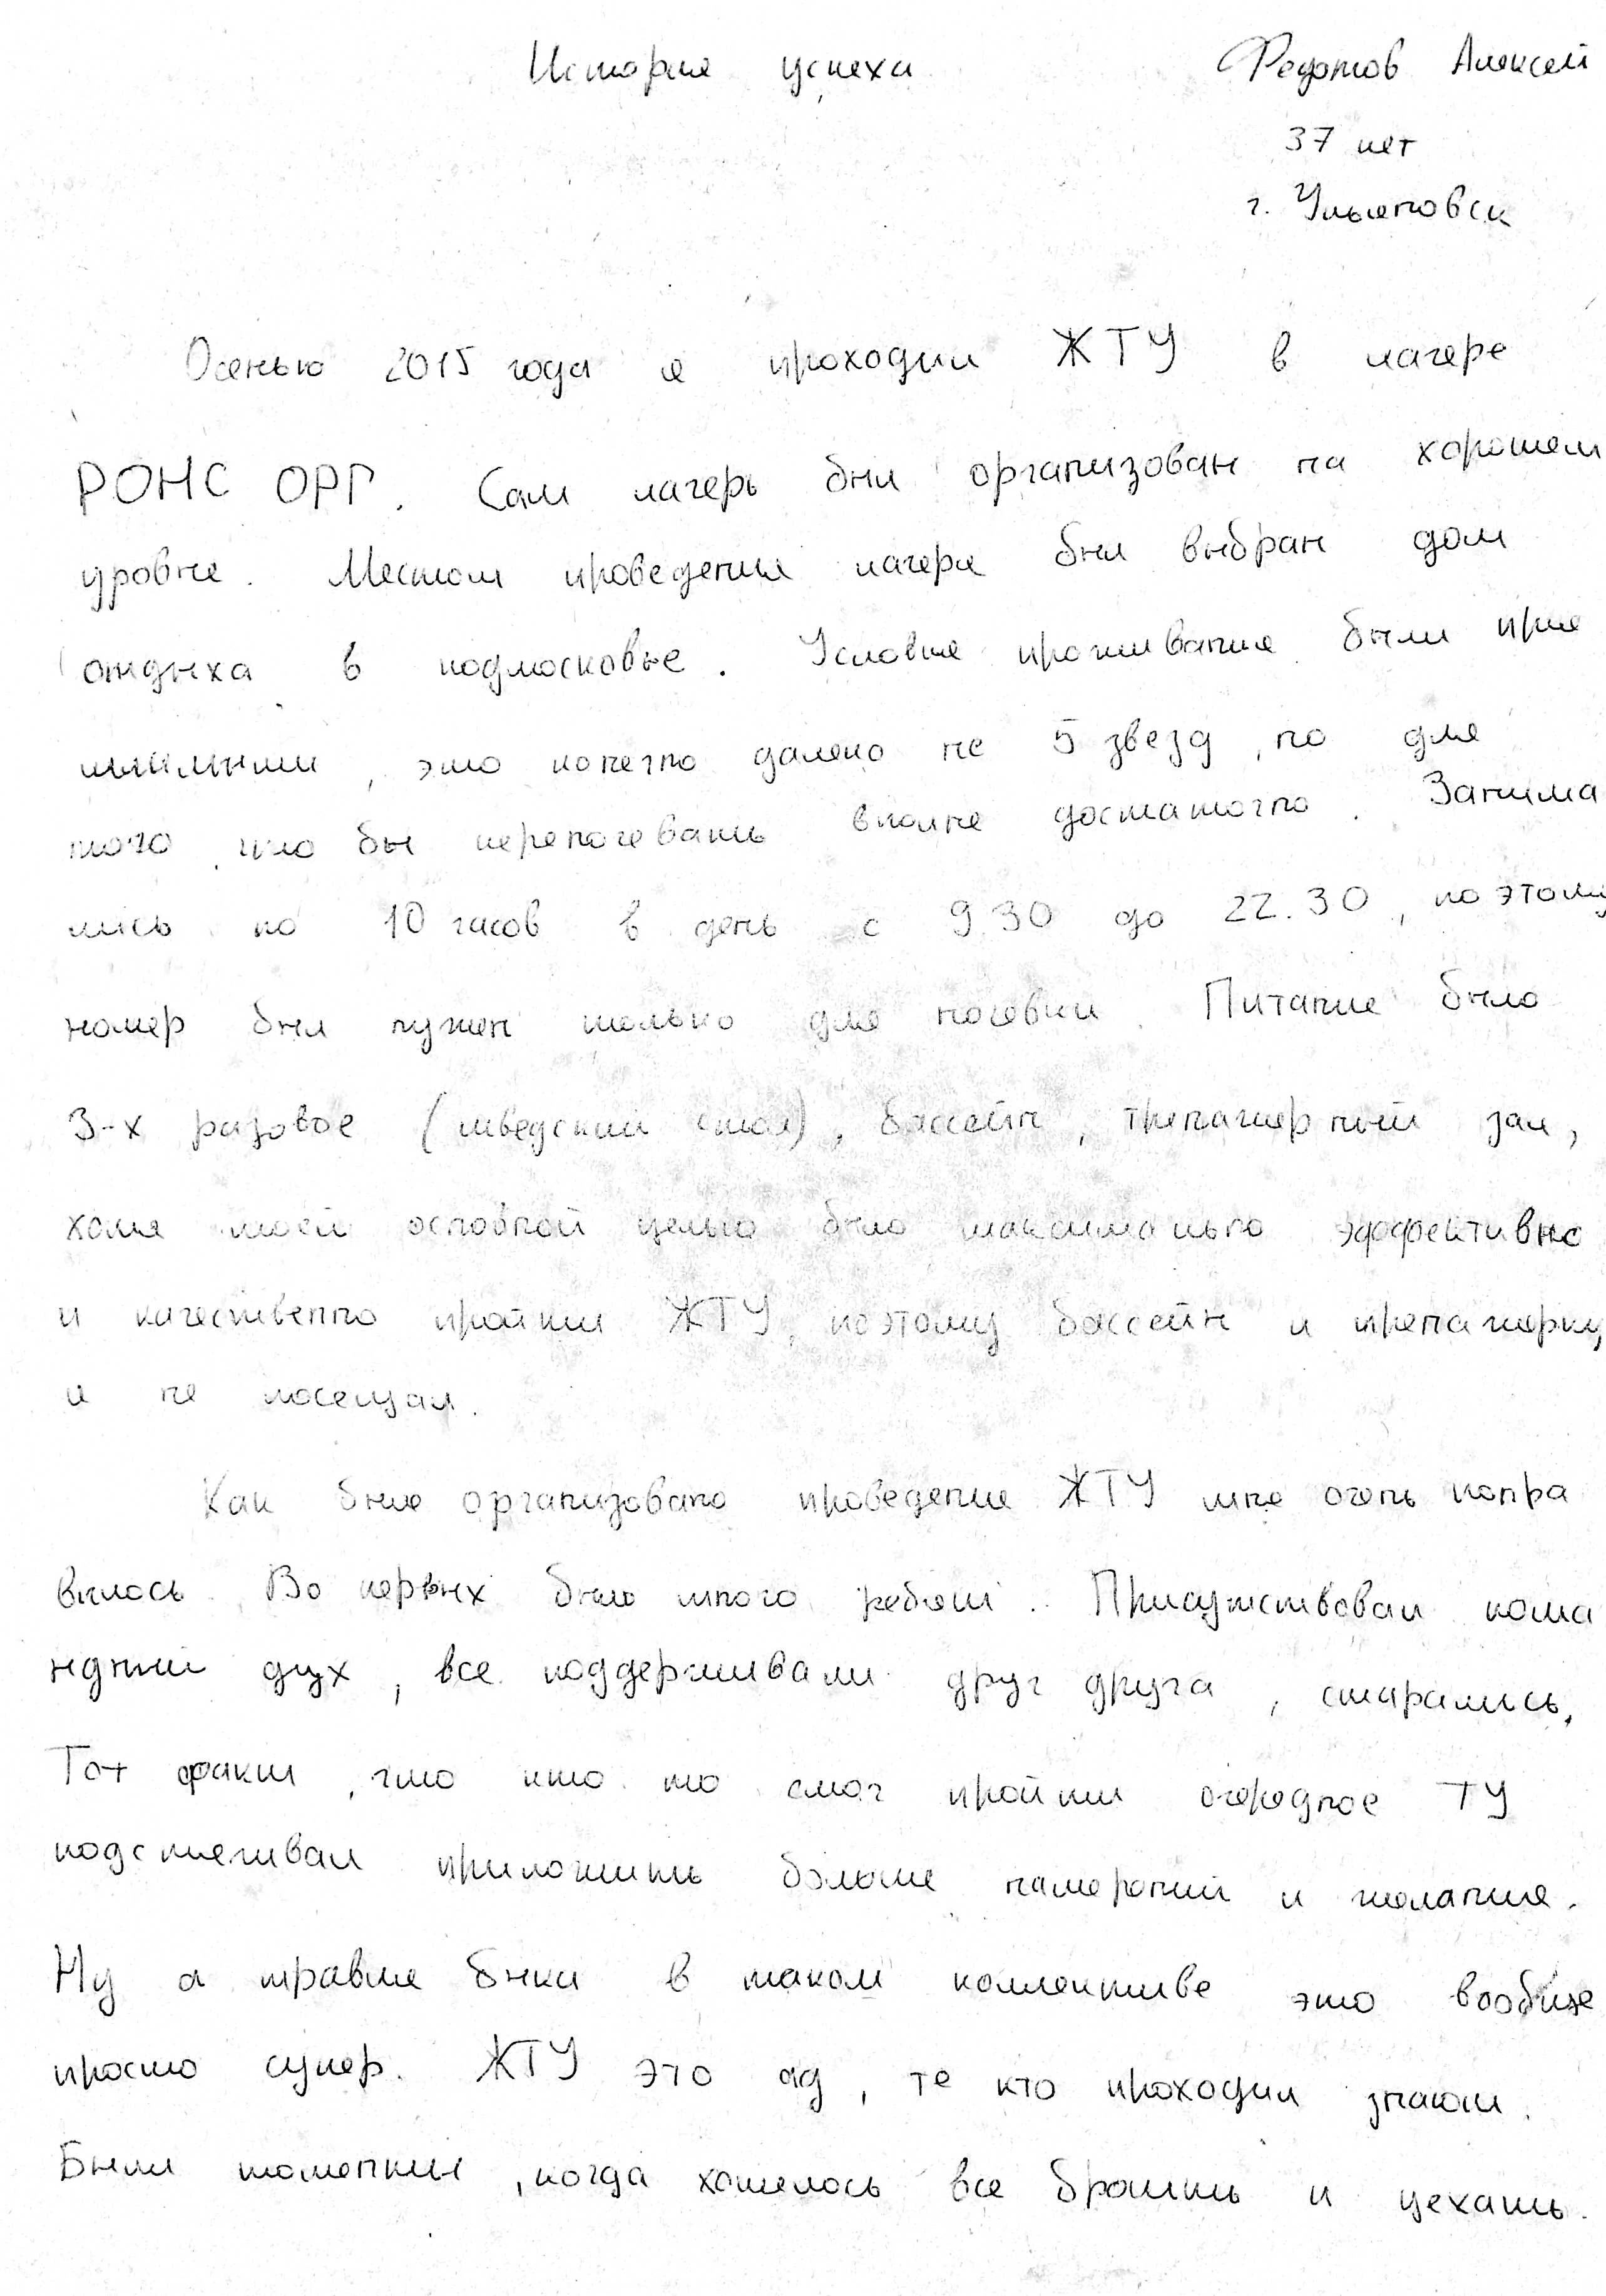 История успеха
Федотов Алексей
37 лет
г. Ульяновск
Осенью 2015 года я проходил ЖТУ в лагере
РОНС ОРГ. Сам лагерь был организован на хорошем
уровне. Местом проведения лагеря был выбран дом
отдыха в подмосковье. Условия проживания были прие
млимыми, это конечно далеко не 5 звезд, но для
того что бы переночевать вполне достаточно. Занима
лись по 10 часов в день с 9.30 до 22.30, поэтому
номер был нужен только для ночевки. Питание было
3-х разовое (шведский стол), бассейн, тренажерный зал,
хотя моей основной целью было максимально эффективно
и качественно пройти ЖТУ, поэтому бассейн и тренажерку
я не посещал.
Как было организовано проведение ЖТУ мне очень понра
вилось. Во первых было много ребят. Присутствовал кома
ндный дух, все поддерживали друг друга, старались,
Тот факт, что кто то смог пройти очередное ТУ
подстегивал приложить больше намерений и желания.
Ну а травля быки в таком коллективе это вообще
просто супер. ЖТУ это ад, те кто проходил знают.
Были моменты, когда хотелось все бросить и уехать.